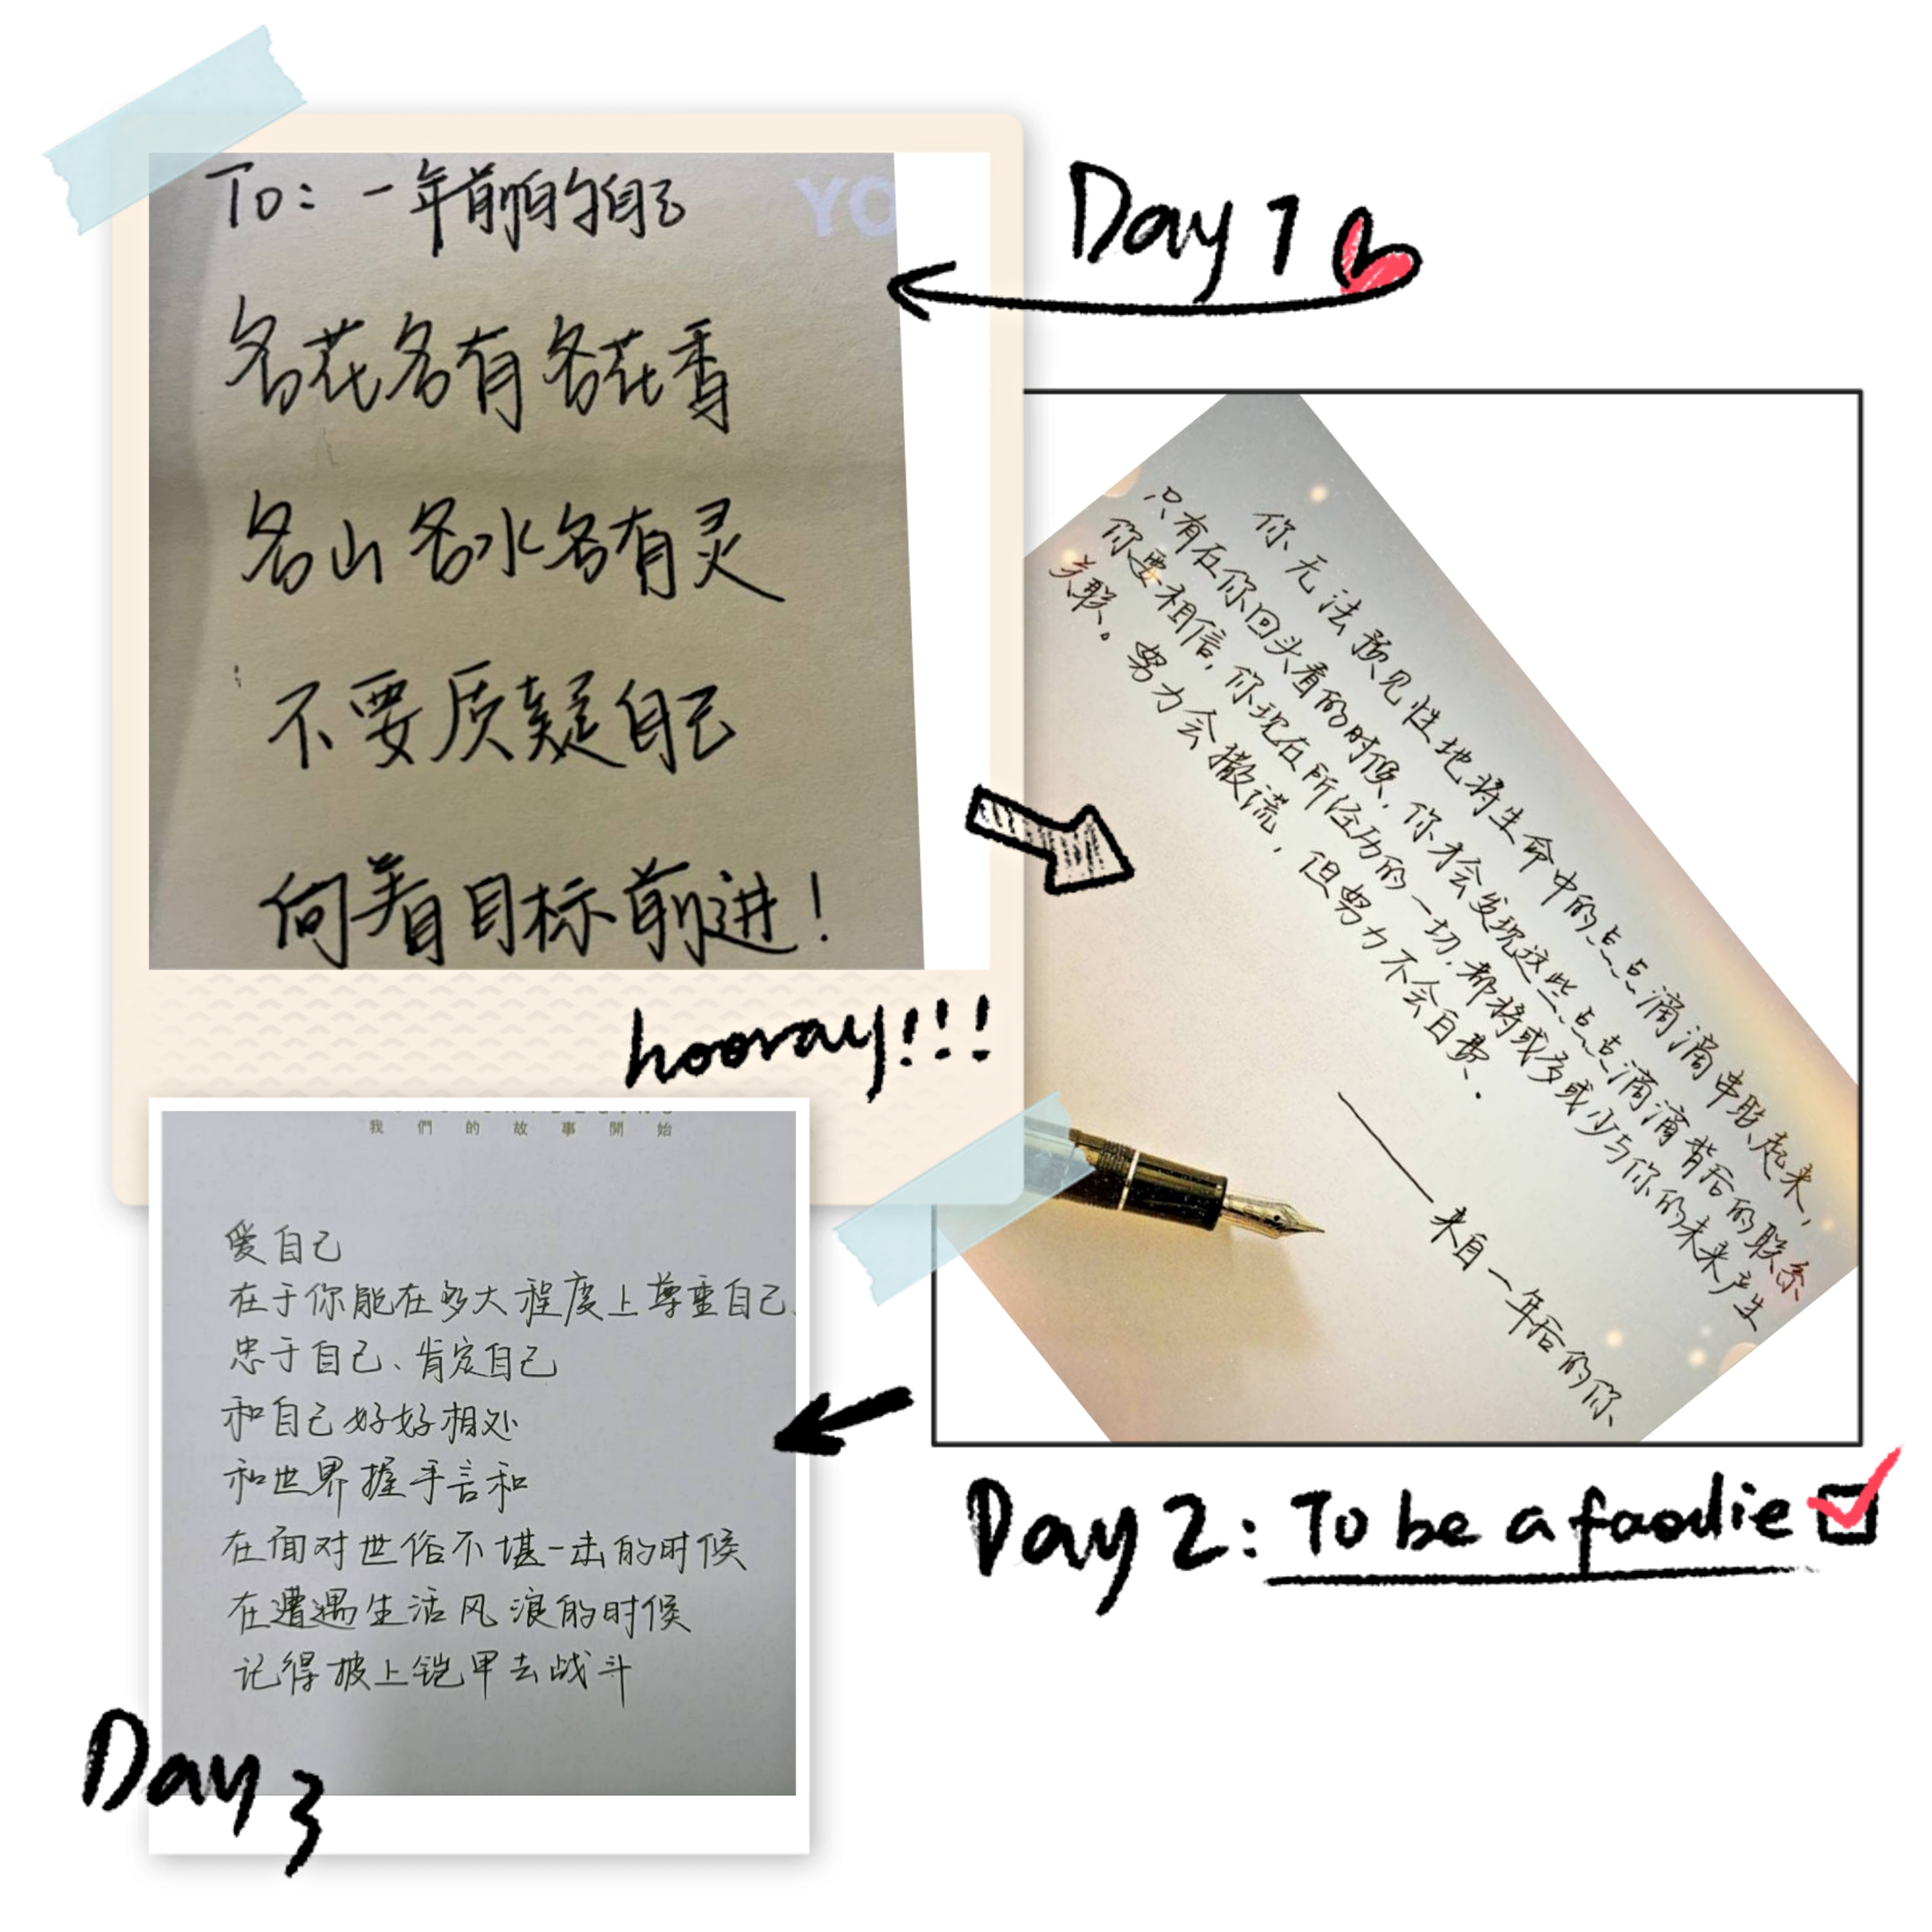 Day 1
To: 一年前的自己
YO
各花各有各花香
各山各水各有灵
不要质疑自己
向着目标前进！
hooray!!!
你无法预见性地将生命中的点点滴滴串联起来，
只有在你回头看的时候，你才会发现这些点点滴滴背后的联系
你要相信，你现在所经历的一切，都将或多或少与你的未来产生
关联。努力会撒谎，但努力不会白费．
——来自一年后的你
Day 2: To be a foodie
我們的故事開始
爱自己
在于你能在多大程度上尊重自己、
忠于自己、肯定自己
和自己好好相处
和世界握手言和
在面对世俗不堪一击的时候
在遭遇生活风浪的时候
记得披上铠甲去战斗
Day 3